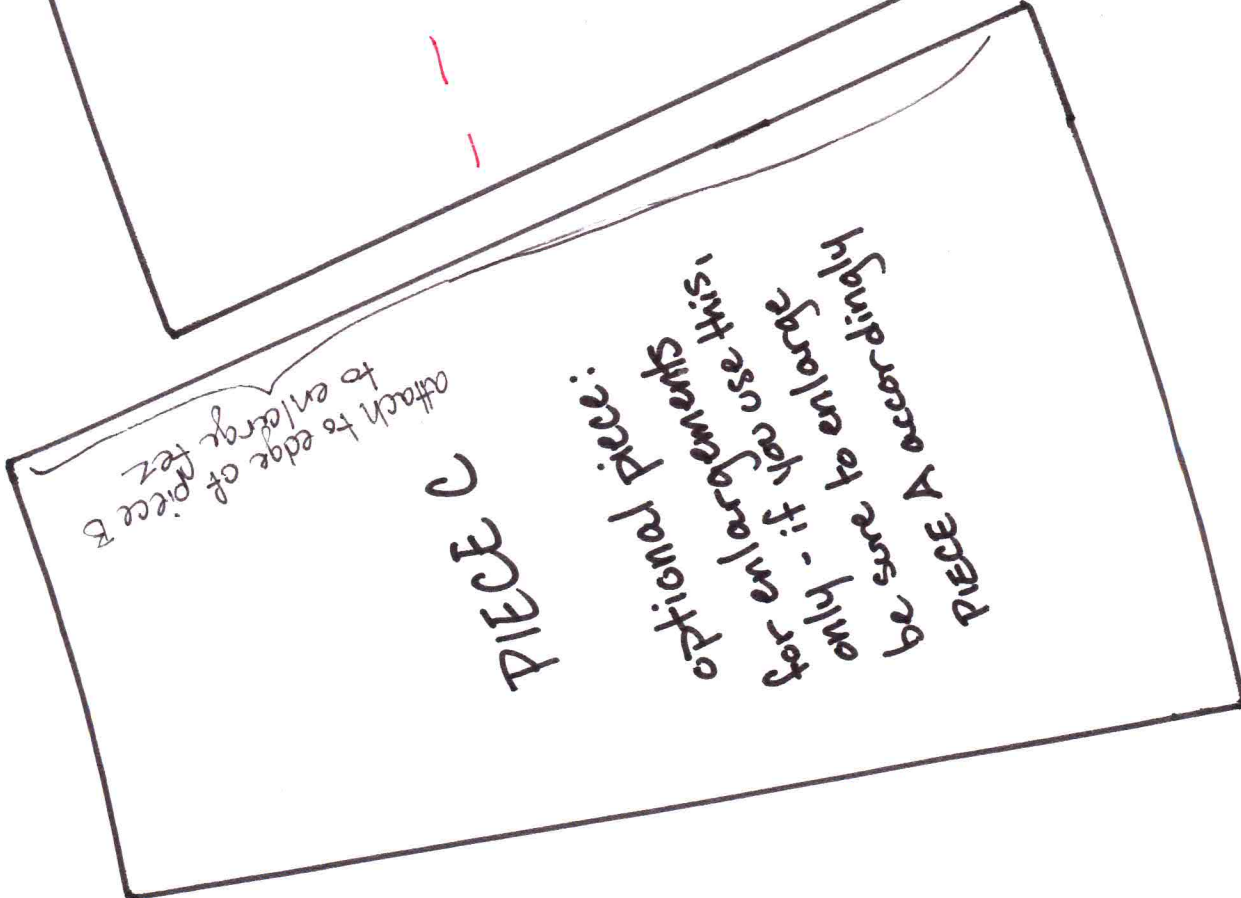 attach to edge of piece B
to enlarge fez
PIECE C
optional piece:
for enlargements
only - if you use this,
be sure to enlarge
PIECE A accordingly